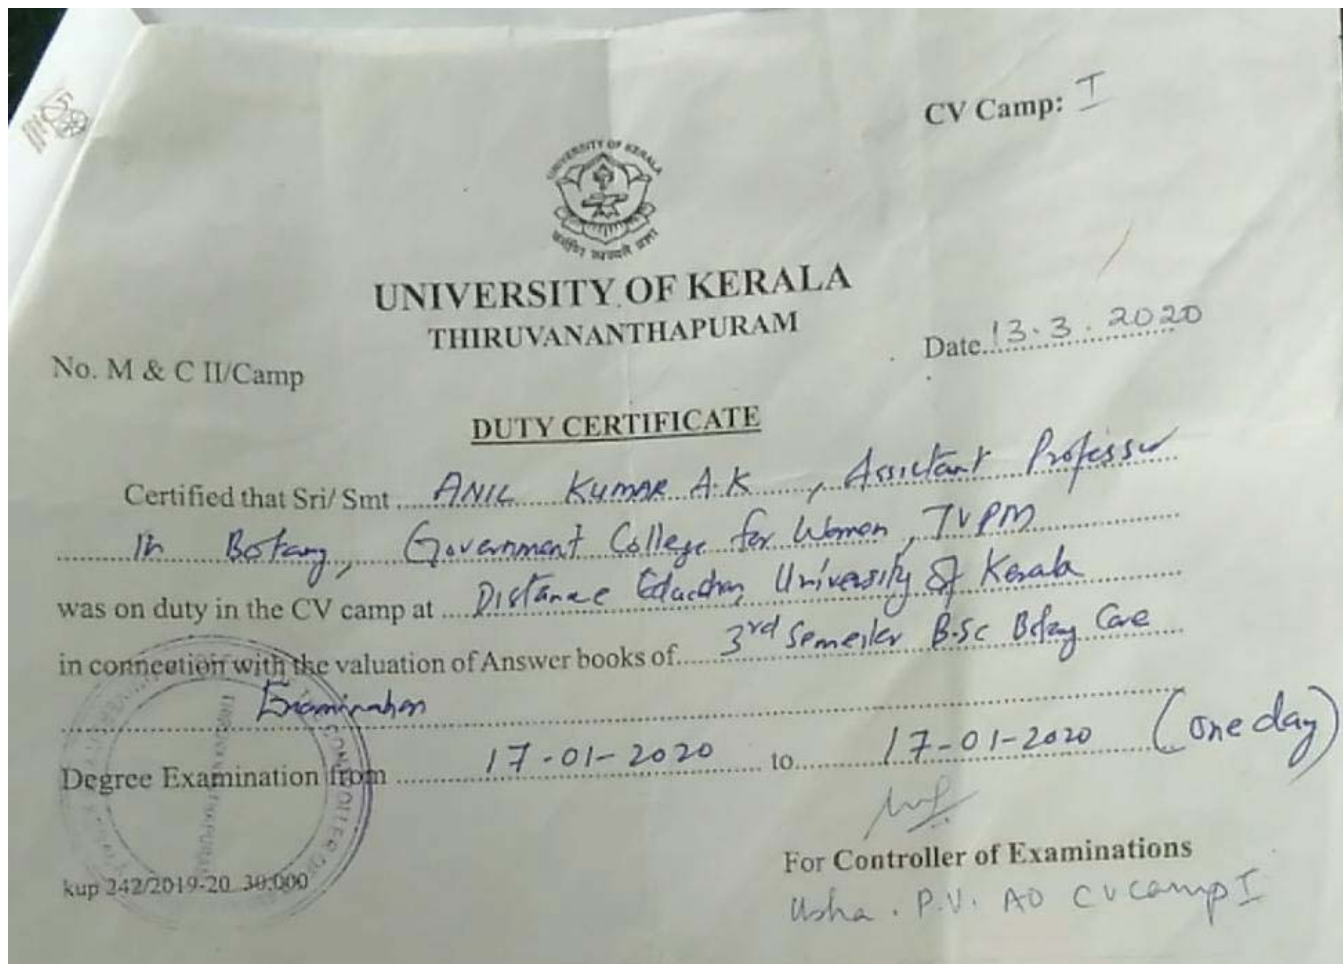 CV Camp: I
UNIVERSITY OF KERALA
UNIVERSITY OF KERALA
THIRUVANANTHAPURAM
No. M & C II/Camp
Date 13.3.2020
DUTY CERTIFICATE
Certified that Sri/ Smt ANIL KUMAR A.K, Assistant Professor
In Botany, Government College for Women, TVPM
was on duty in the CV camp at Distance Education, University of Kerala
in connection with the valuation of Answer books of 3rd Semester B.Sc Botany Core
Examination
Degree Examination from 17-01-2020 to 17-01-2020 (one day)
For Controller of Examinations
Usha. P.V. AO CV camp I
kup 242/2019-20 30,000